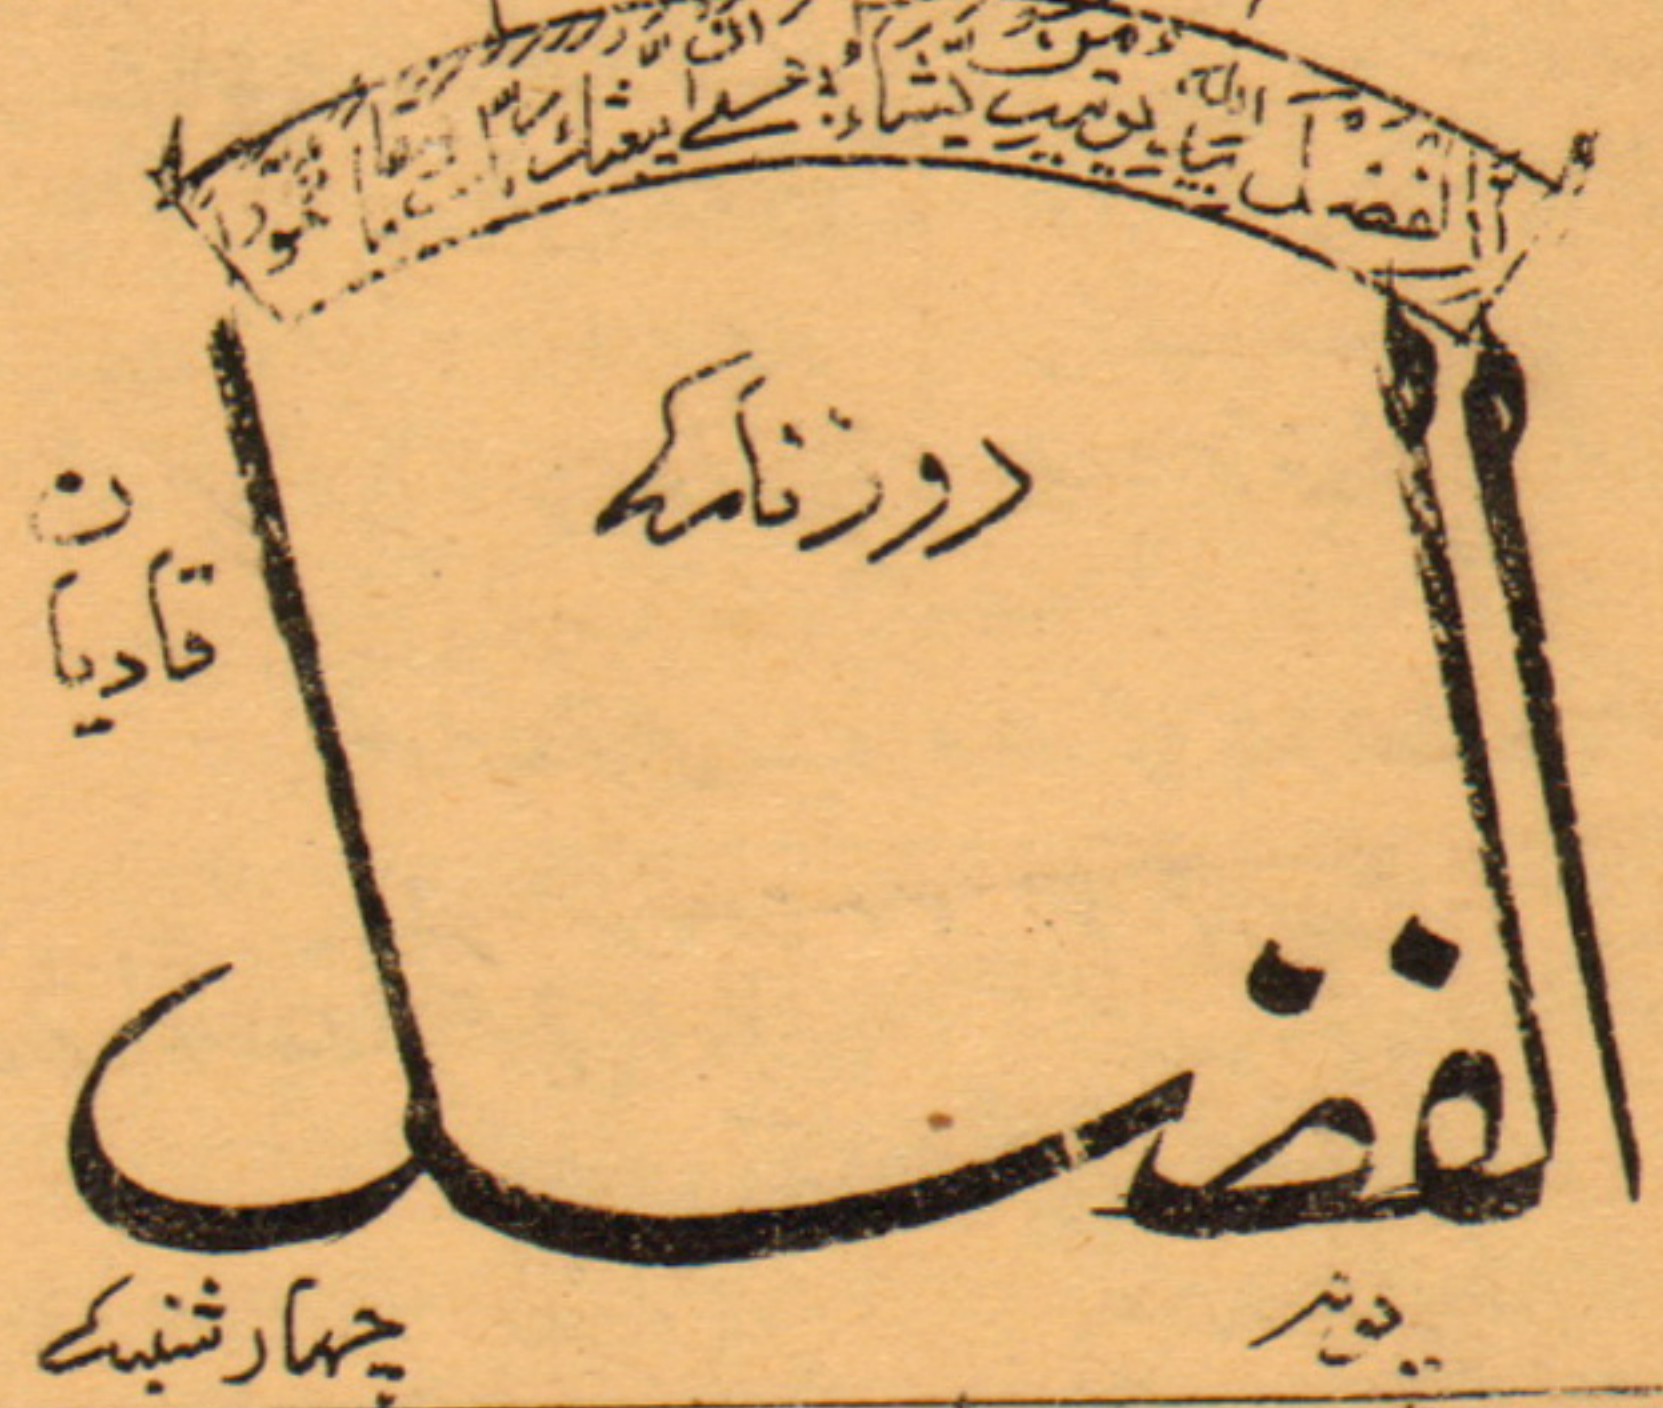 ان الفضل بيد الله يؤتيه من يشاء عسى ان يبعثك ربك مقاما محمودا
روزنامہ
قادیان
الفضل
یوم
چہار شنبہ